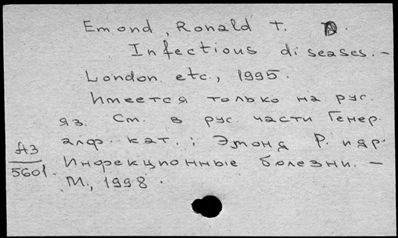 Emond, Ronald T. D.
Infectious diseases. –
London etc., 1995.
Имеется только на рус.
яз. См. в рус. части Генер.
алф. кат.: Эмонд Р. и др.
АЗ
5601.
Инфекционные болезни. –
М., 1998.